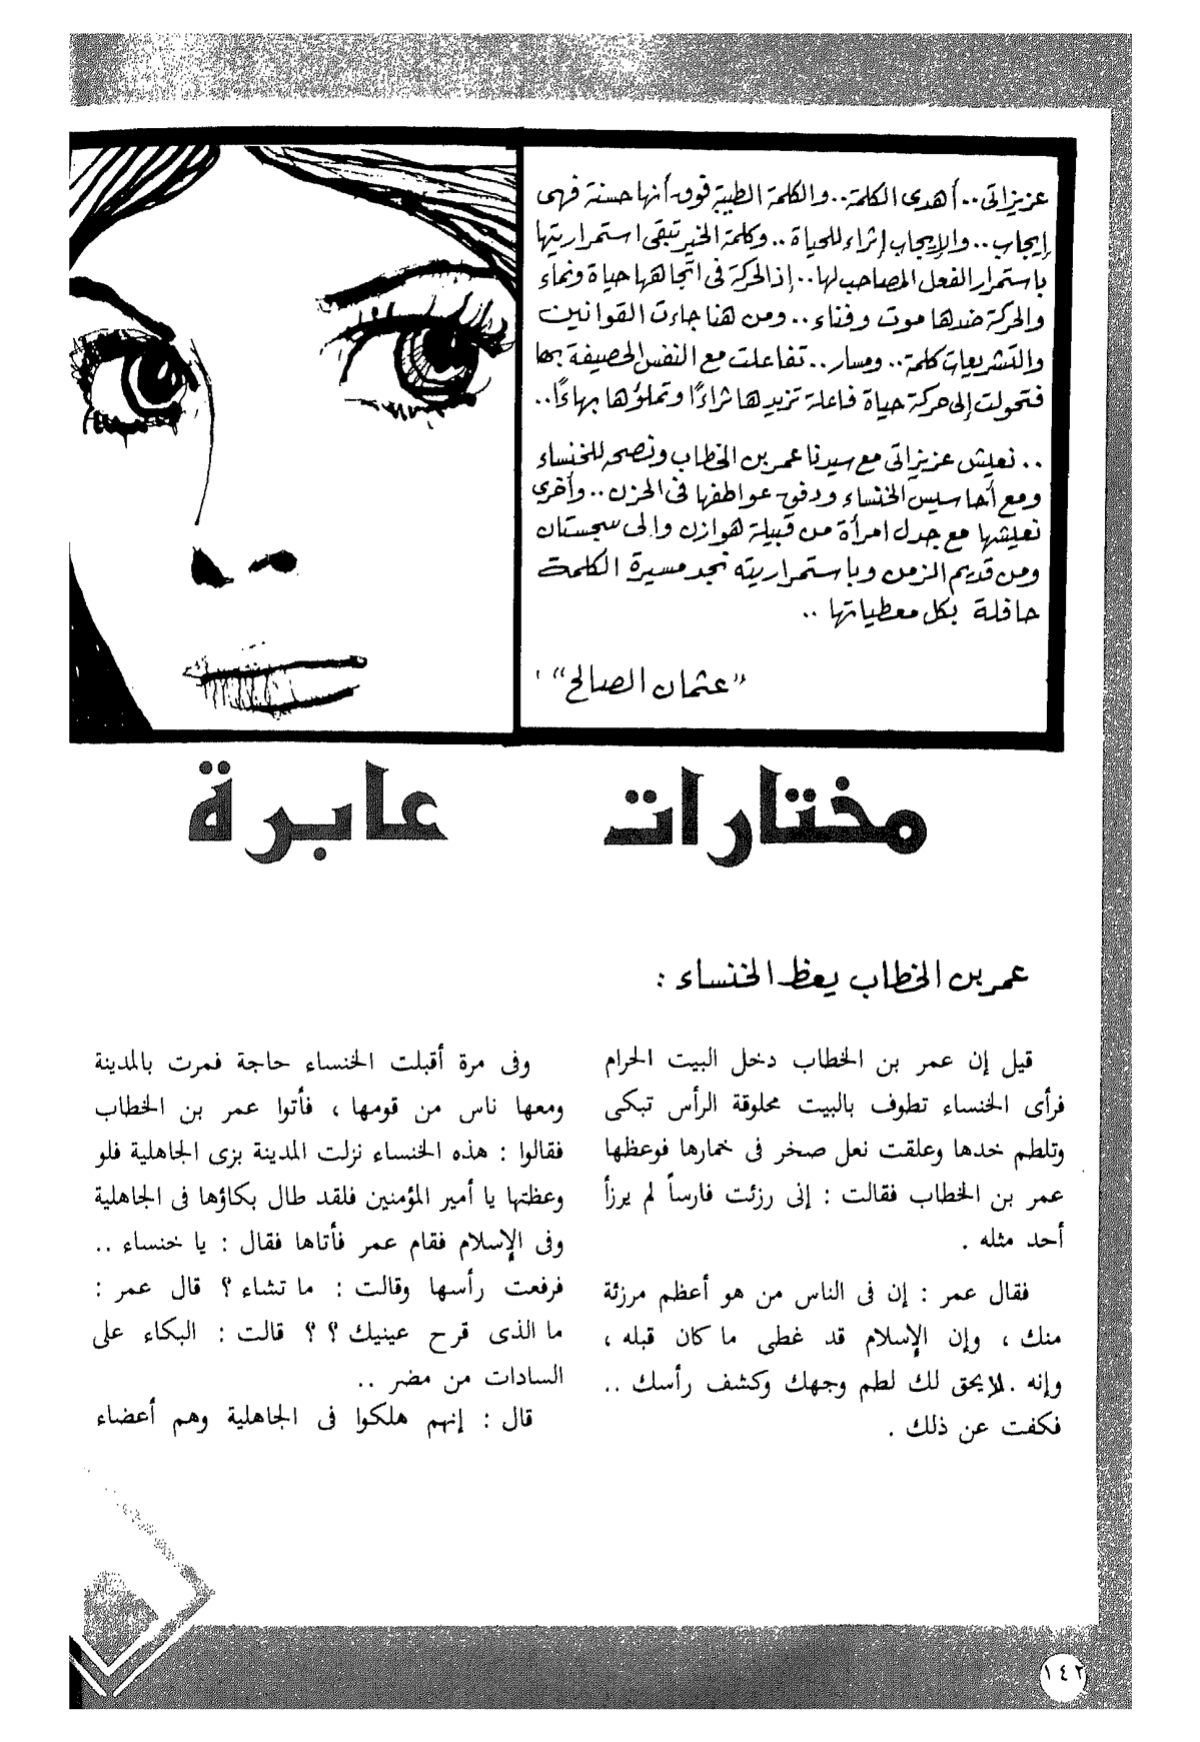 عزيزاتى.. أهدى الكلمة.. والكلمة الطيبة فوق أنها حسنة فهى
إيجاب.. والإيجاب إثراء للحياة.. وكلمة الخير تبقى استمراريتها
باستمرار الفعل المصاحب لها.. إذ الحركة فى اتجاهها حياة ونماء
والحركة ضدها موت وفناء.. ومن هنا جاءت القوانين
والتشريعات كلمة.. ومسار.. تفاعلت مع النفس الحصيفة بها
فتحولت إلى حركة حياة فاعلة تزيدها ثراءً وتملؤها بهاءً..
.. نعيش عزيزاتى مع سيدنا عمر بن الخطاب ونصحه للخنساء
ومع أحاسيس الخنساء ودفق عواطفها فى الحزن.. وأخرى
نعيشها مع جدل امرأة من قبيلة هوازن والى سجستان
ومن قديم الزمن وباستمراريته نجد مسيرة الكلمة
حافلة بكل معطياتها ..
"عثمان الصالح"
مختارات عابرة
عمر بن الخطاب يعظ الخنساء :
قيل إن عمر بن الخطاب دخل البيت الحرام
فرأى الخنساء تطوف بالبيت محلوقة الرأس تبكى
وتلطم خدها وعلقت نعل صخر فى خمارها فوعظها
عمر بن الخطاب فقالت : إنى رزئت فارساً لم يرزأ
أحد مثله .
فقال عمر : إن فى الناس من هو أعظم مرزئة
منك ، وإن الإسلام قد غطى ما كان قبله ،
وإنه . لا يحق لك لطم وجهك وكشف رأسك ..
فكفت عن ذلك .
وفى مرة أقبلت الخنساء حاجة فمرت بالمدينة
ومعها ناس من قومها ، فأتوا عمر بن الخطاب
فقالوا : هذه الخنساء نزلت المدينة بزى الجاهلية فلو
وعظتها يا أمير المؤمنين فلقد طال بكاؤها فى الجاهلية
وفى الإسلام فقام عمر فأتاها فقال : يا خنساء ..
فرفعت رأسها وقالت : ما تشاء ؟ قال عمر :
ما الذى قرح عينيك ؟ ؟ قالت : البكاء على
السادات من مضر ..
قال : إنهم هلكوا فى الجاهلية وهم أعضاء
١٤٢